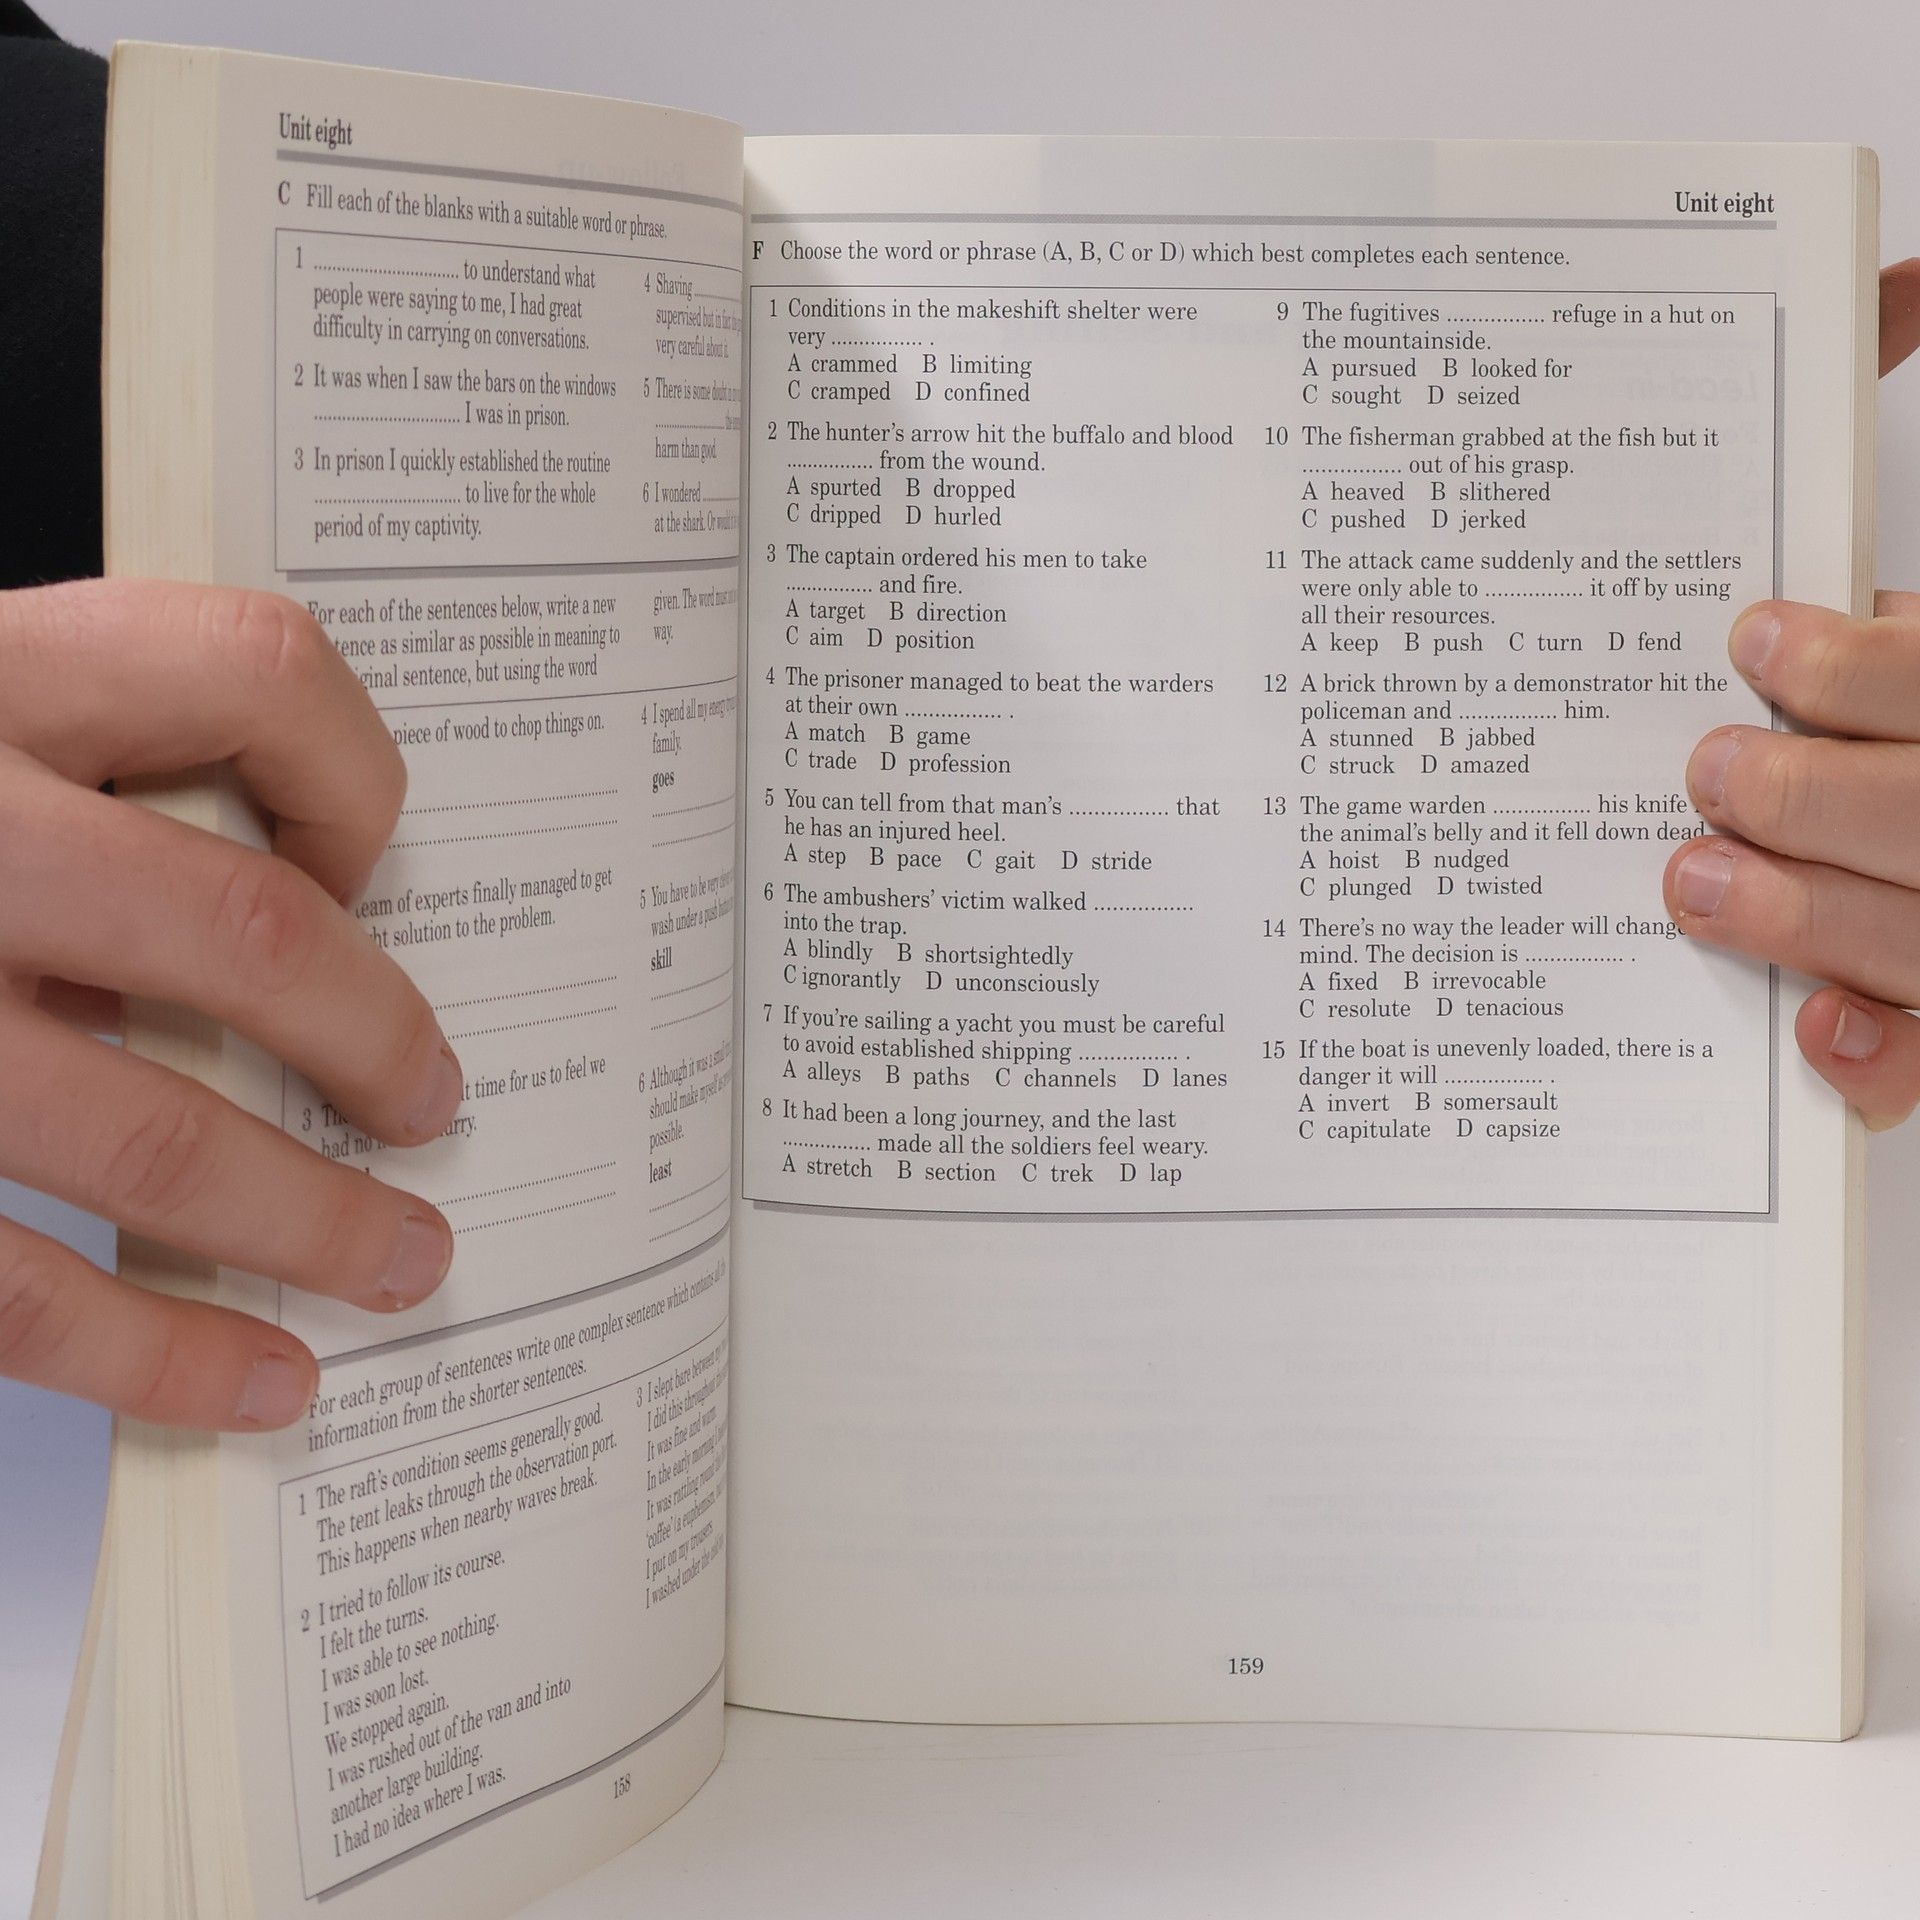 Unit eight
C Fill each of the blanks with a suitable word or phrase.
1 ................................ to understand what
people were saying to me, I had great
difficulty in carrying on conversations.
2 It was when I saw the bars on the windows
................................ I was in prison.
3 In prison I quickly established the routine
................................ to live for the whole
period of my captivity.
4 Shaving
supervised but in fact
very careful about it.
5 There is some doubt
harm than good.
6 I wondered
at the shark. Or
For each of the sentences below, write a new
as similar as possible in meaning to
sentence, but using the word
given. The word must
way.
piece of wood to chop things on.
team of experts finally managed to get
solution to the problem.
3
time for us to feel we
had no
4 I spend all my energy
family.
goes
5 You have to be very
wash under a push
skill
6 Although it was a small
should make myself
possible.
least
For each group of sentences write one complex sentence which contains all the
information from the shorter sentences.
1 The raft's condition seems generally good.
The tent leaks through the observation port.
This happens when nearby waves break.
2 I tried to follow its course.
I felt the turns.
I was able to see nothing.
I was soon lost.
We stopped again.
I was rushed out of the van and into
another large building.
I had no idea where I was.
3 I slept bare between my
I did this throughout
It was fine and warm.
In the early morning I
It was rattling round the
'coffee' (a euphemism,
I put on my trousers.
I washed under the
158
Unit eight
F Choose the word or phrase (A, B, C or D) which best completes each sentence.
1 Conditions in the makeshift shelter were
very ................ .
A crammed B limiting
C cramped D confined
2 The hunter's arrow hit the buffalo and blood
................ from the wound.
A spurted B dropped
C dripped D hurled
3 The captain ordered his men to take
................ and fire.
A target B direction
C aim D position
4 The prisoner managed to beat the warders
at their own ................ .
A match B game
C trade D profession
5 You can tell from that man's ................ that
he has an injured heel.
A step B pace C gait D stride
6 The ambushers' victim walked ................
into the trap.
A blindly B shortsightedly
C ignorantly D unconsciously
7 If you're sailing a yacht you must be careful
to avoid established shipping ................ .
A alleys B paths C channels D lanes
8 It had been a long journey, and the last
................ made all the soldiers feel weary.
A stretch B section C trek D lap
9 The fugitives ................ refuge in a hut on
the mountainside.
A pursued B looked for
C sought D seized
10 The fisherman grabbed at the fish but it
................ out of his grasp.
A heaved B slithered
C pushed D jerked
11 The attack came suddenly and the settlers
were only able to ................ it off by using
all their resources.
A keep B push C turn D fend
12 A brick thrown by a demonstrator hit the
policeman and ................ him.
A stunned B jabbed
C struck D amazed
13 The game warden ................ his knife
the animal's belly and it fell down dead
A hoist B nudged
C plunged D twisted
14 There's no way the leader will change
mind. The decision is ................ .
A fixed B irrevocable
C resolute D tenacious
15 If the boat is unevenly loaded, there is a
danger it will ................ .
A invert B somersault
C capitulate D capsize
159